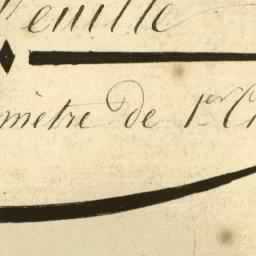 euille
mètre de 1er C